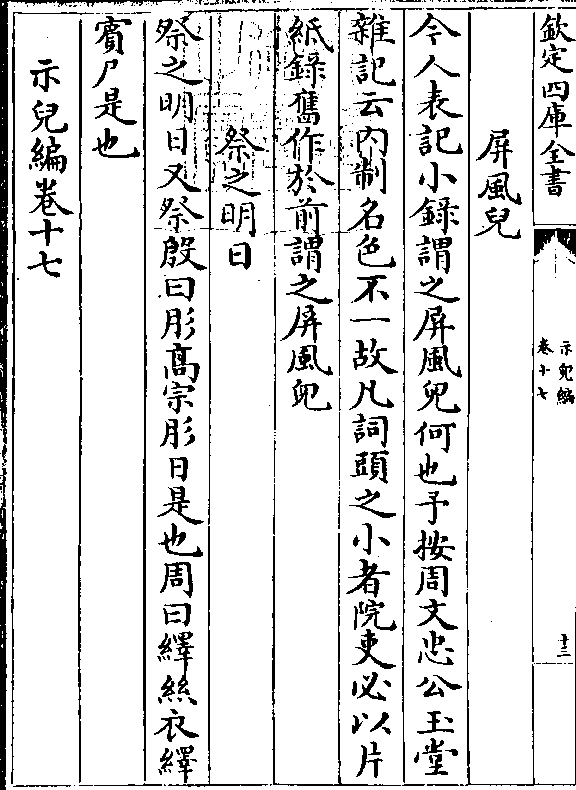 欽定四庫全書
示兒編
卷十七
十三
屏風兒
今人表記小録謂之屏風兒何也予按周文忠公玉堂
雜記云内制名色不一故凡詞頭之小者院吏必以片
紙録舊作於前謂之屏風兒
祭之明日
祭之明日又祭殷曰肜髙宗肜日是也周曰繹絲衣繹
賓尸是也
示兒編卷十七